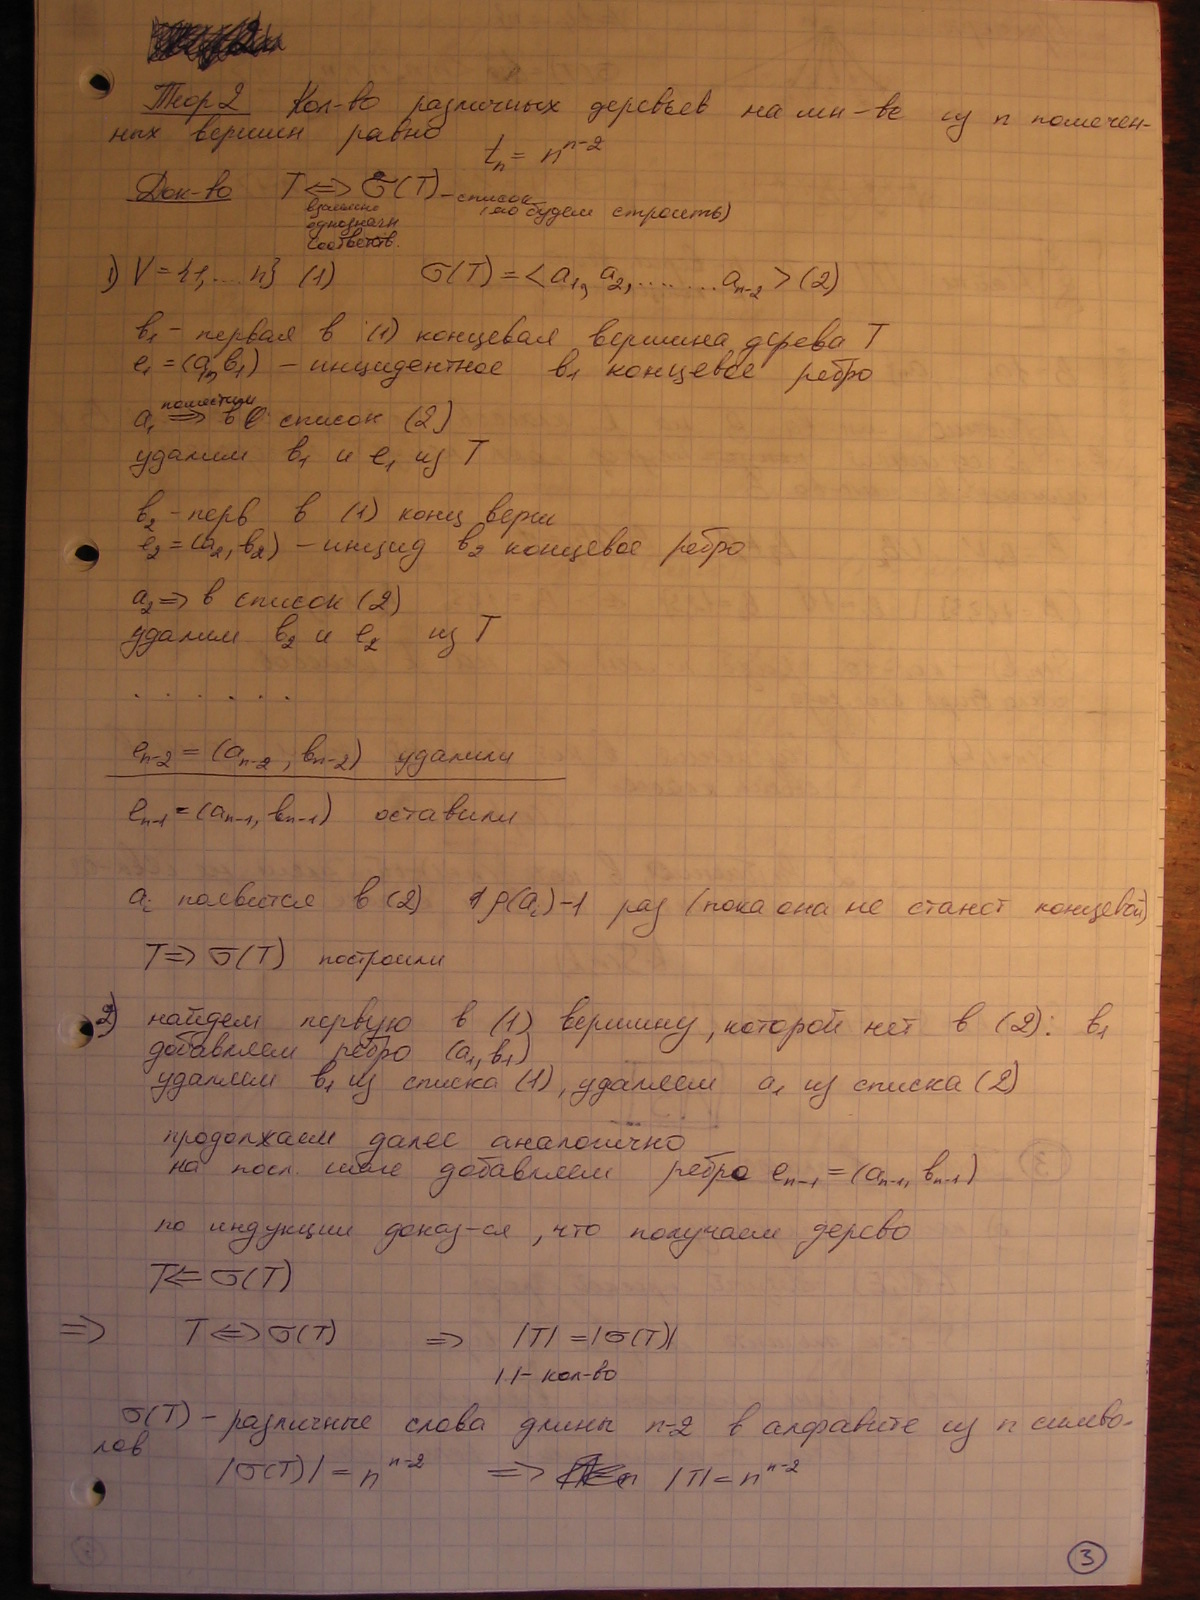 Теор 2 Кол-во различных деревьев на мн-ве из n помечен-
ных вершин равно
tₙ = nⁿ⁻²
Док-во T ⇔ σ(T) - список
(его будем строить)
взаимно
однозначн
соответств.
1) V = {1, .... n} (1) σ(T) = <a₁, a₂, ........ aₙ₋₂> (2)
в₁ - первая в (1) концевая вершина дерева T
e₁ = (a₁, в₁) - инцидентное в₁ концевое ребро
поместим
a₁ ⇒ в список (2)
удалим в₁ и e₁ из T
в₂ - перв в (1) конц верш
e₂ = (a₂, в₂) - инцид в₂ концевое ребро
a₂ ⇒ в список (2)
удалим в₂ и e₂ из T
. . . . . . .
eₙ₋₂ = (aₙ₋₂, вₙ₋₂) удалили
eₙ₋₁ = (aₙ₋₁, вₙ₋₁) оставили
aᵢ появится в (2) ρ(aᵢ)-1 раз (пока она не станет концевой)
T ⇒ σ(T) построили
2) найдем первую в (1) вершину, которой нет в (2): в₁
добавляем ребро (a₁, в₁)
удаляем в₁ из списка (1), удаляем a₁ из списка (2)
продолжаем далее аналогично
на посл. шаге добавляем ребро eₙ₋₁ = (aₙ₋₁, вₙ₋₁)
по индукции доказ-ся, что получаем дерево
T ⇐ σ(T)
⇒ T ⇔ σ(T) ⇒ |T| = |σ(T)|
|.| - кол-во
σ(T) - различные слова длины n-2 в алфавите из n симво-
лов
|σ(T)| = nⁿ⁻² ⇒ |T| = nⁿ⁻²
3